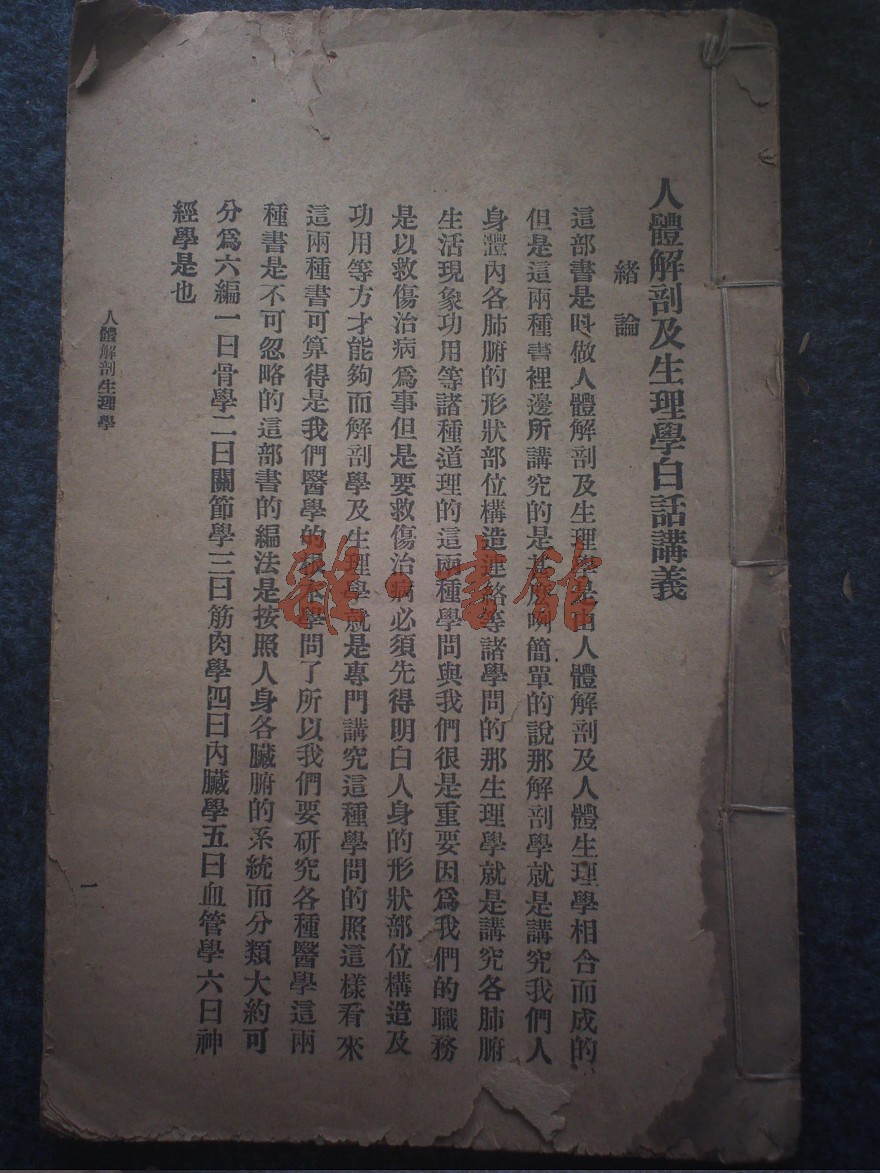 人體解剖及生理學白話講義
緒論
這部書是叫做人體解剖及生理學是由人體解剖及人體生理學相合而成的
但是這兩種書裡邊所講究的是甚麼啊簡單的說那解剖學就是講究我們人
身體內各肺腑的形狀部位構造連絡等諸學問的那生理學就是講究各肺腑
生活現象功用等諸種道理的這兩種學問與我們很是重要因爲我們的職務
是以救傷治病爲事但是要救傷治病必須先得明白人身的形狀部位構造及
功用等方才能夠而解剖學及生理學就是專門講究這種學問的照這樣看來
這兩種書可算得是我們醫學的根本學問了所以我們要研究各種醫學這兩
種書是不可忽略的這部書的編法是按照人身各臟腑的系統而分類大約可
分爲六編一曰骨學二曰關節學三曰筋肉學四曰內臟學五曰血管學六曰神
經學是也
人體解剖生理學
一
雜·書館